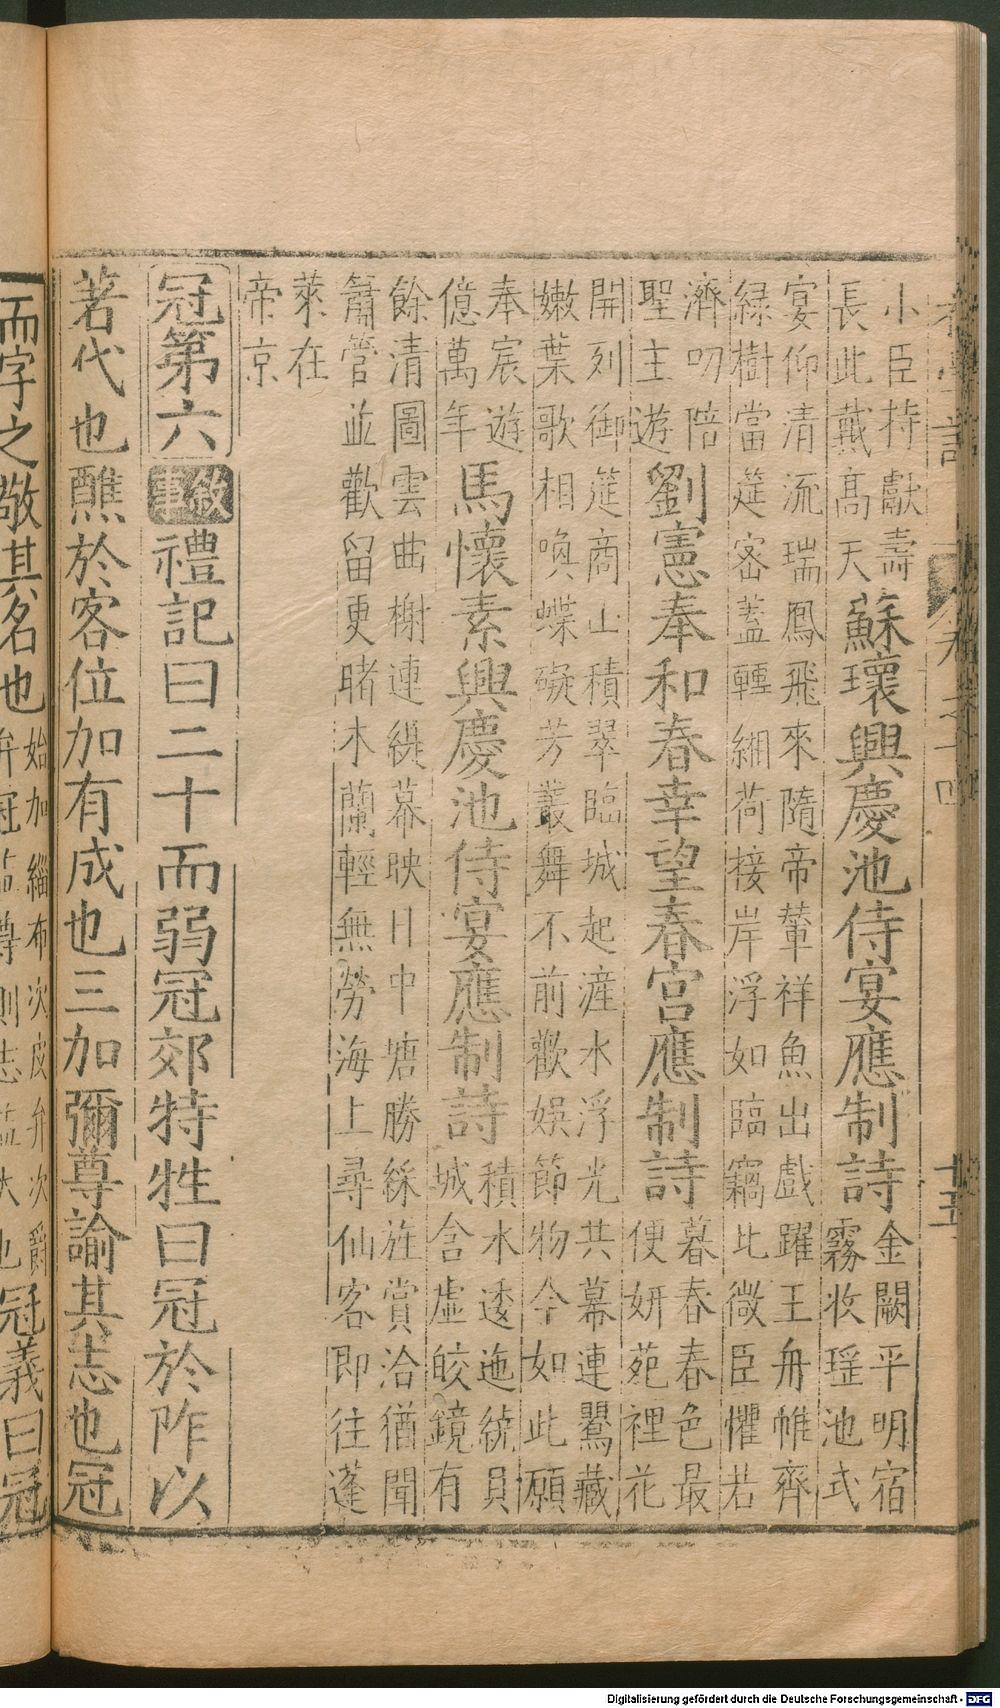 初學記
卷之十四
十五
小臣持獻壽
長此戴高天
蘇瓌興慶池侍宴應制詩
金闕平明宿
霧收瑤池式
宴仰清流瑞鳳飛來隨帝輦祥魚出戲躍王舟帷齊
綠樹當筵密蓋轉緗荷接岸浮如臨竊比微臣懼若
濟叨陪
聖主遊
劉憲奉和春幸望春宮應制詩
暮春春色最
便妍苑裡花
開列御筵商山積翠臨城起滻水浮光共幕連鸎藏
嫩葉歌相喚蝶礙芳叢舞不前歡娛節物今如此願
奉宸遊
億萬年
馬懷素興慶池侍宴應制詩
積水逶迤統員
城含虛皎鏡有
餘清圖雲曲榭連緹幕映日中塘勝綵旌賞洽猶聞
簫管並歡留更睹木蘭輕無勞海上尋仙客即往蓬
萊在
帝京
冠第六 敘事 禮記曰二十而弱冠郊特牲曰冠於阼以
著代也醮於客位加有成也三加彌尊諭其志也冠
而字之敬其名也
始加緇布次皮弁次爵
弁冠益尊則志益大也
冠義曰冠
Digitalisierung gefördert durch die Deutsche Forschungsgemeinschaft - DFG